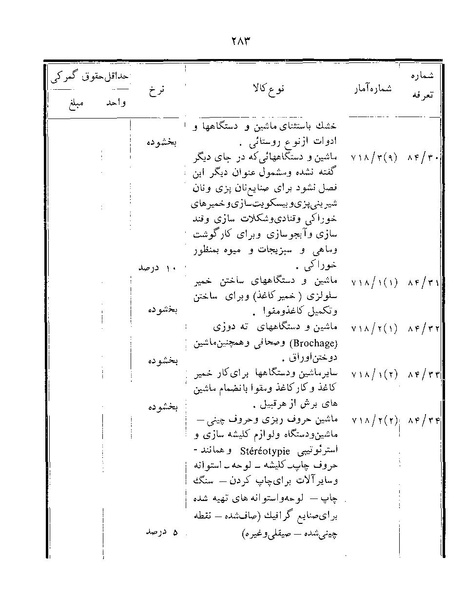 ۲۸۳
شماره تعرفه
شماره آمار
نوع کالا
نرخ
حداقل حقوق گمرکی
واحد مبلغ
خشك باستثنای ماشین و دستگاهها و
ادوات از نوع روستائی . بخشوده
۸۴/۳۰ ۷۱۸/۳(۹) ماشین و دستگاههائی که در جای دیگر
گفته نشده و مشمول عنوان دیگر این
فصل نشود برای صنایع نان پزی و نان
شیرینی پزی و بیسکویت سازی و خمیرهای
خوراکی و قنادی و شکلات سازی و قند
سازی و آبجوسازی و برای کار گوشت
و ماهی و سبزیجات و میوه بمنظور
خوراکی . ۱۰ درصد
۸۴/۳۱ ۷۱۸/۱(۱) ماشین و دستگاههای ساختن خمیر
سلولزی (خمیر کاغذ) و برای ساختن
و تکمیل کاغذ و مقوا . بخشوده
۸۴/۳۲ ۷۱۸/۲(۱) ماشین و دستگاههای ته دوزی
(Brochage) و صحافی و همچنین ماشین
دوختن اوراق . بخشوده
۸۴/۳۳ ۷۱۸/۱(۲) سایر ماشین و دستگاهها برای کار خمیر
کاغذ و کار کاغذ و مقوا بانضمام ماشین
های برش از هر قبیل . بخشوده
۸۴/۳۴ ۷۱۸/۲(۲) ماشین حروف ریزی و حروف چینی –
ماشین و دستگاه و لوازم کلیشه سازی و
استرئوتیپی Stéréotypie و همانند -
حروف چاپ – کلیشه – لوحه – استوانه
و سایر آلات برای چاپ کردن – سنگ
چاپ – لوحه و استوانه های تهیه شده
برای صنایع گرافیك (صاف شده – نقطه
چینی شده – صیقلی و غیره) ۵ درصد